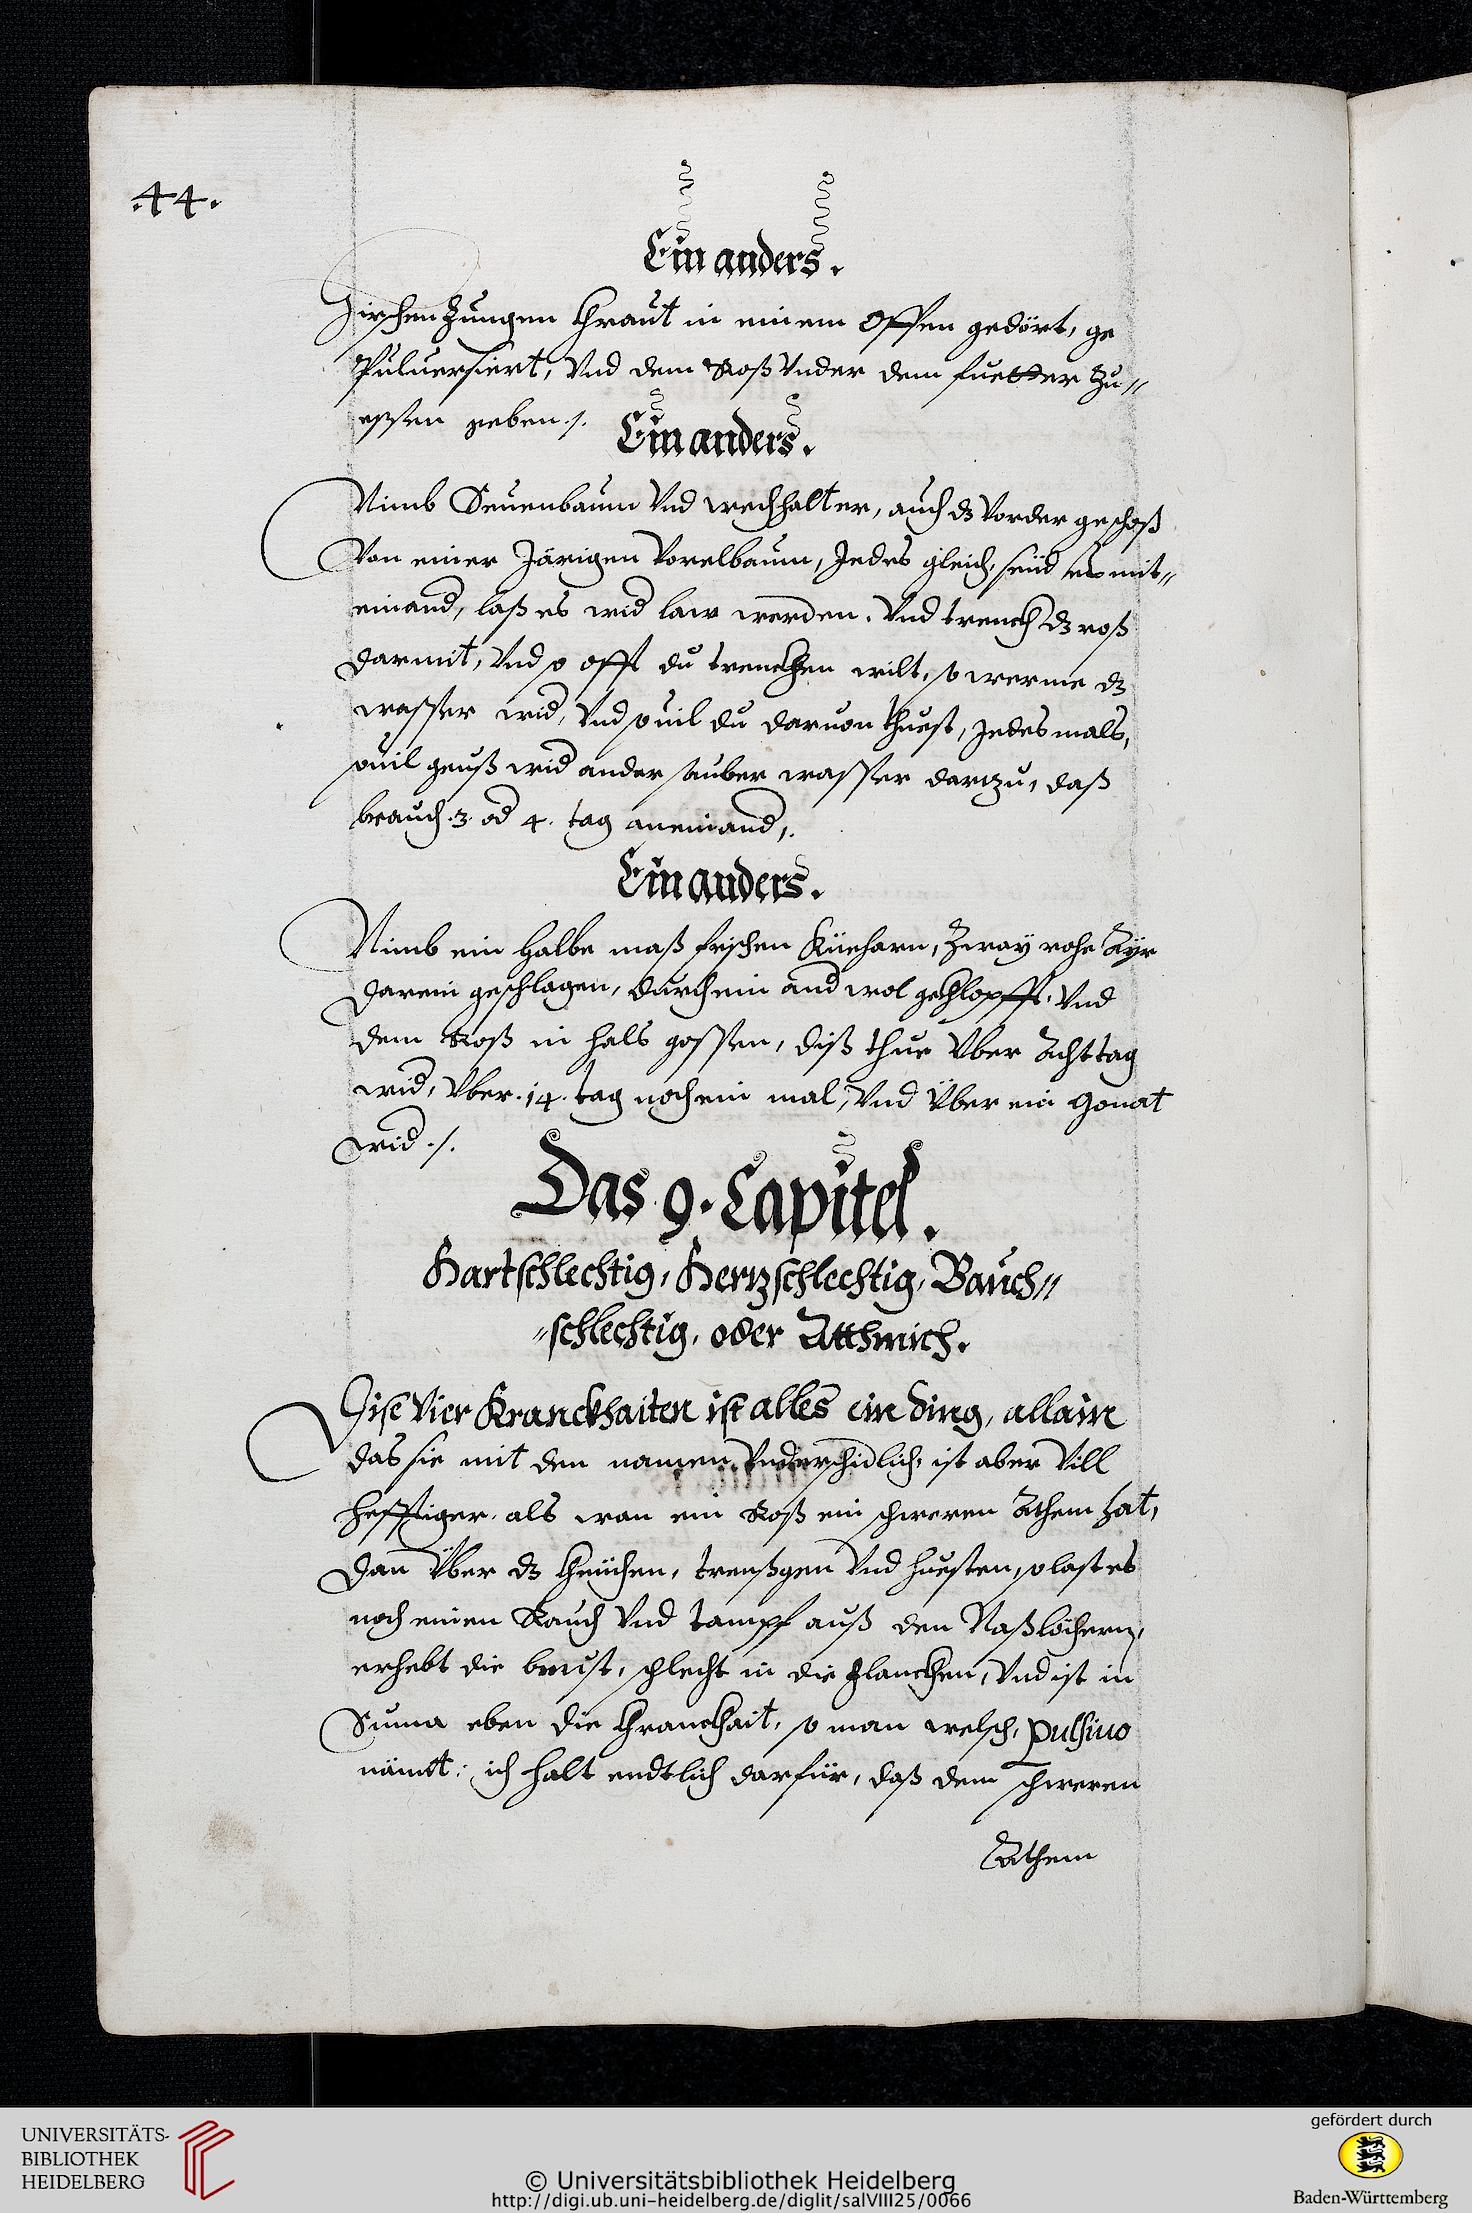 .44.
Ein anders.
Hirschen Zungen Khraut in einem Offen gedört, ge
Puluersiert, Vnd dem Roß Vnder dem fuetter Zu„
essen geben ./.
Ein anders.
Nimb Seuenbaum Vnd wechhalter, auch dz Vorder geschoß
Von einer Järigen Lorelbaum, Jedes gleich, seüd es mit„
einand, laß es wid law werden. Vnd trenckh dz roß
darmit, Vnd so offt du trenckhen wilt, so werme dz
wasser wid, Vnd souil du daruon thuest, Jedes mals,
souil geuß wid ander sauber wasser darzu, daß
brauch .3. od 4. tag aneinand,.
Ein anders.
Nimb ein halbe maß frischen Küeharn, Zway rohe Ayr
darein geschlagen, durch ein and wol gekhlopfft. Vnd
dem Roß in hals gossen, diß thue Vber Acht tag
wid, Vber .14. tag noch ein mal, Vnd Über ein Monat
wid ./.
Das .9. Capitel.
Hartschlechtig, Hertzschlechtig, Bauch„
„schlechtig, oder Atthmich.
Dise Vier Kranckhaiten ist alles ein ding, allain
das sie mit den namen Vnderschidlich, ist aber Vill
hefftiger, als wan ein Roß ein schweren Athem hat,
dan Über dz kheichen, trensgen Vnd huesten, so last es
noch einen Rauch Vnd tampf auß den Naßlöchern,
erhebt die brust, schlecht in die flanckhen, Vnd ist in
Suma eben die Khranckhait, so man welsch, pulsiuo
nämt: ich halt endtlich darfür, daß dem schweren
Athem
UNIVERSITÄTS-
BIBLIOTHEK
HEIDELBERG
© Universitätsbibliothek Heidelberg
http://digi.ub.uni-heidelberg.de/diglit/salVIII25/0066
gefördert durch
Baden-Württemberg